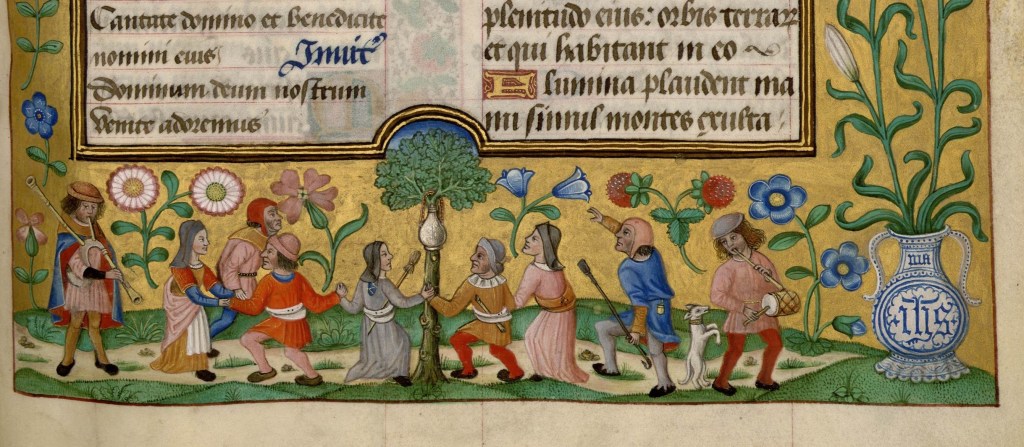 Cantate domino et benedicite
nomini eius Inuit
Dominum deum nostrum
Venite adoremus
plenitudo eius: orbis terrarꝝ
et qui habitant in eo
Flumina plaudent ma
nu simul montes exulta
ihs